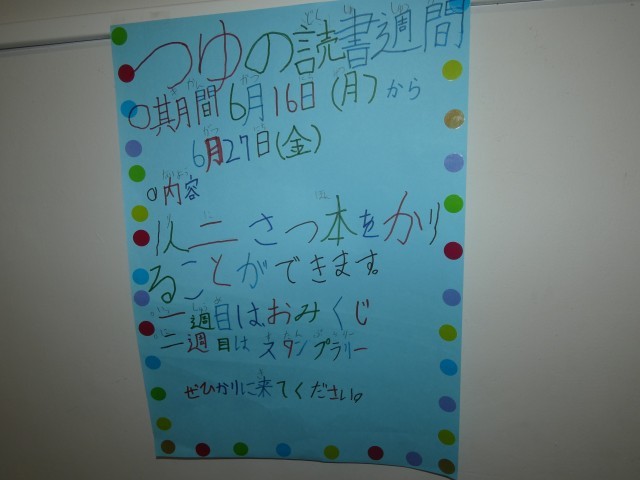 つゆの読書週間
○期間 6月16日(月)から
6月27日(金)
○内容
1人二さつ本をかり
ることができます。
一週目はおみくじ
二週目はスタンプラリー
ぜひかりに来てください。